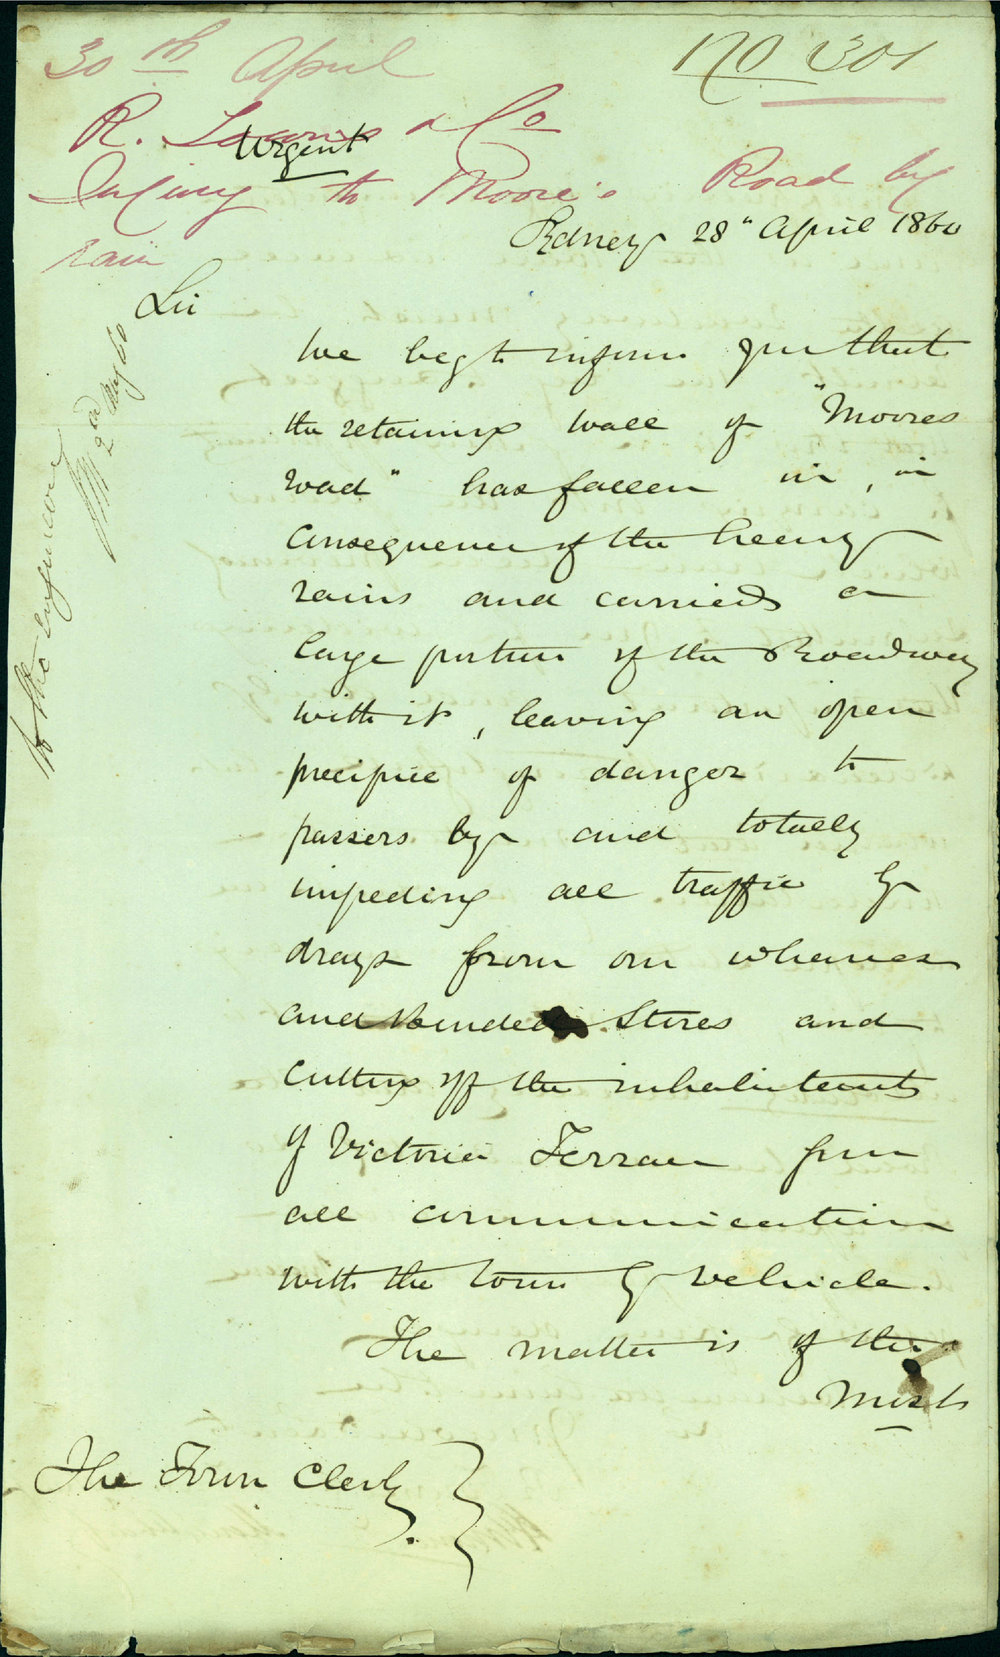 30th April
No 301
R. Towns & Co
Urgent
Injury to Moore's Road by
rain
Sydney 28" April 1860
Sir
We beg to inform you that
the retaining wall of "Moores
road" has fallen in, in
consequence of the heavy
rains and carried a
large portion of the Roadway
with it, leaving an open
precipice of danger to
passers by and totally
impeding all traffic by
drays from our wharves
and Bonded Stores and
cutting off the inhabitants
of Victoria Terrace from
all communication
with the town by vehicle.
The matter is of the
most
The Town Clerk.
To the Engineer
2nd May 60